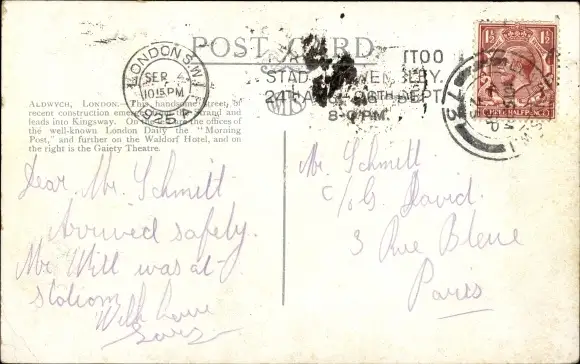 POST CARD
LONDON S.W.1
SEP
10 15 PM
TTOO
STAD WEMBLEY.
24TH A SEPT
8-0 PM
1½ 1½
ALDWYCH, LONDON.—This handsome street, of
recent construction the Strand and
leads into Kingsway. On the are the offices of
the well-known London Daily the "Morning
Post," and further on the Waldorf Hotel, and on
the right is the Gaiety Theatre.
Dear Mr. Schmitt
Arrived safely.
Mr Will was at
station
Mr. Schmitt
c/o G. David.
3 Rue Bleue
Paris